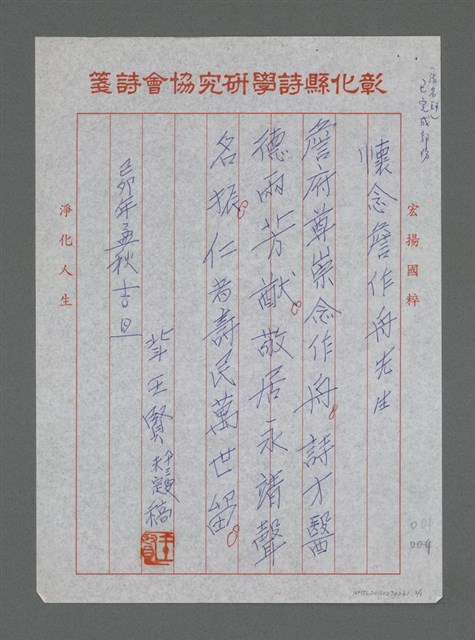 彰化縣詩學研究協會詩箋
已完成部份
宏揚國粹
懷念詹作舟先生
詹府尊崇念作舟。詩才醫
德兩芳猷。敬居永靖聲
名振。仁者壽民萬世留。
己卯年孟秋吉旦
王賢 題稿
淨化人生